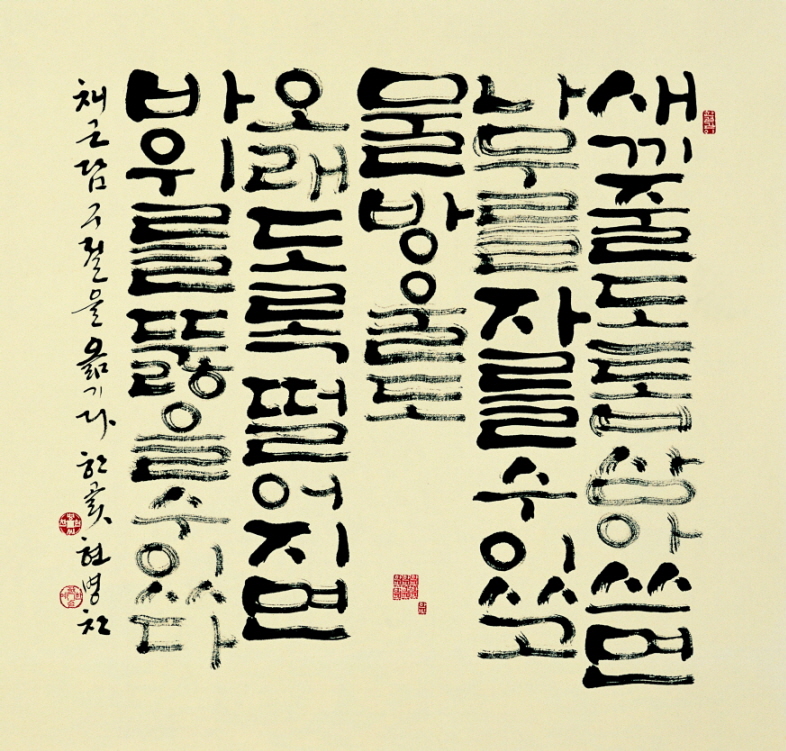 새끼줄도 톱 삼아 쓰면
나무를 자를 수 있고
물방울도
오래도록 떨어지면
바위를 뚫을 수 있다
채근담 구절을 옮기다 한곬 현병찬